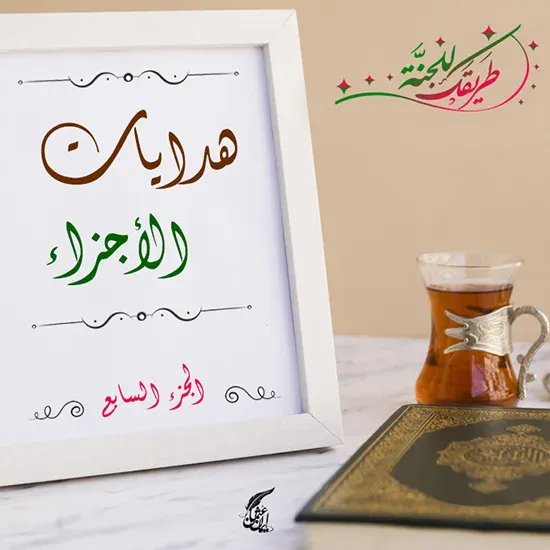 طريقك للجنَّة
هدايات
الأجزاء
الجزء السابع